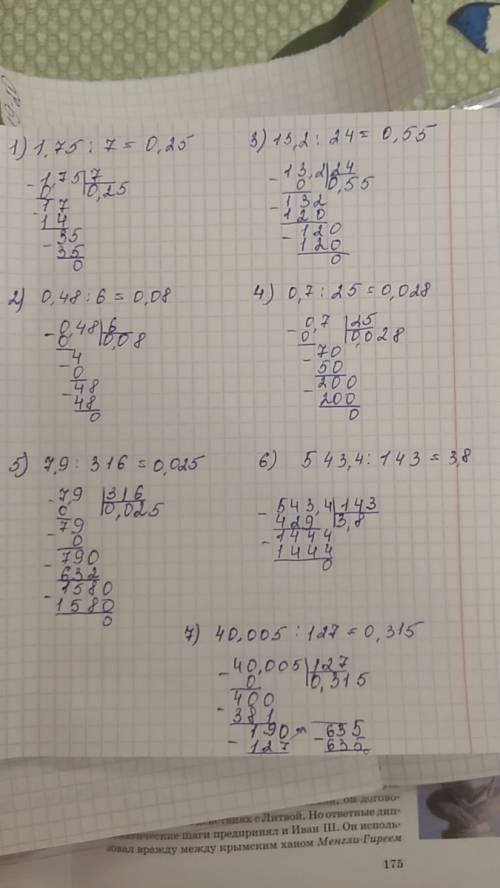 1) 1,75 : 7 = 0,25
- 1,75 | 7
0, 0,25
- 17
14
- 35
35
0
2) 0,48 : 6 = 0,08
- 0,48 | 6
0, 0,08
4
- 0
- 48
48
0
3) 13,2 : 24 = 0,55
- 13,2 | 24
0 0,55
- 132
120
- 120
120
0
4) 0,7 : 25 = 0,028
- 0,7 | 25
0, 0,028
- 70
50
- 200
200
0
5) 7,9 : 316 = 0,025
- 7,9 | 316
0 0,025
- 79
0
- 790
632
- 1580
1580
0
6) 543,4 : 143 = 3,8
- 543,4 | 143
429 3,8
- 1444
1444
0
7) 40,005 : 127 = 0,315
- 40,005 | 127
0 0,315
- 400
381
- 190
127
- 635
635
он догово-
с Литвой. Но ответные дип-
шаги предпринял и Иван III. Он исполь-
зовал вражду между крымским ханом Менгли-Гиреем
175